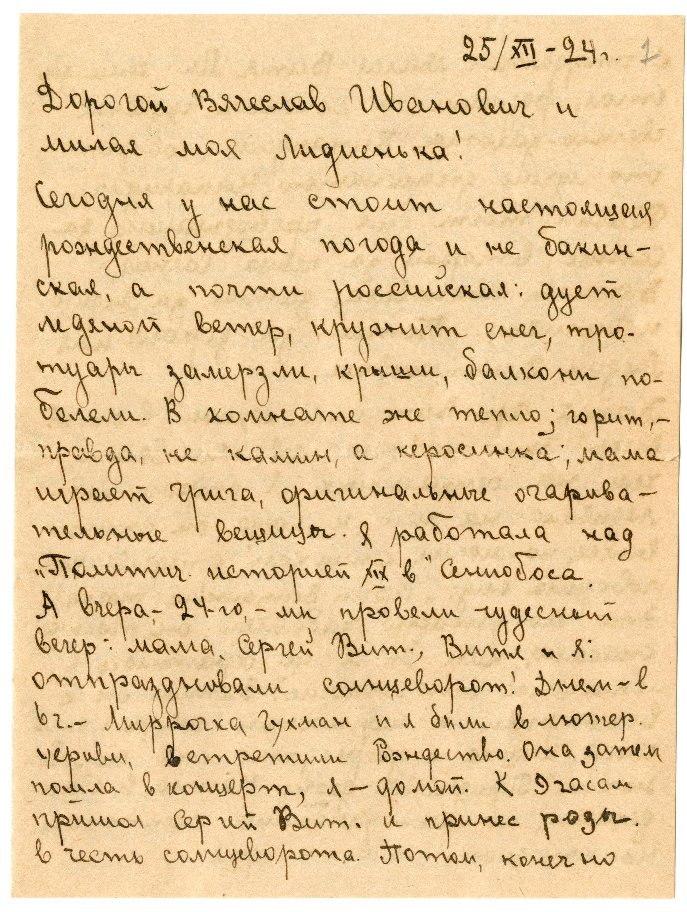 25/XII-24г. 1
Дорогой Вячеслав Иванович и
милая моя Лидиенька!
Сегодня у нас стоит настоящая
рождественская погода и не бакин-
ская, а почти российская: дует
ледяной ветер, кружит снег, тро-
туары замерзли, крыши, балконы по-
белели. В комнате же тепло; горит,-
правда, не камин, а керосинка; мама
играет Грига, оригинальные очарова-
тельные вещицы. Я работала над
„Политич. историей XIX в" Сеньобоса.
А вчера,- 24-го,- мы провели чудесный
вечер: мама, Сергей Вит., Витя и я:
отпраздновали солнцеворот! Днем-в
6 ч.- Миррочка Гухман и я были в лютер.
церкви, встретили Рождество. Она затем
пошла в концерт, я-домой. К 9 часам
пришол Сергей Вит. и принес розы.
в честь солнцеворота. Потом, конечно